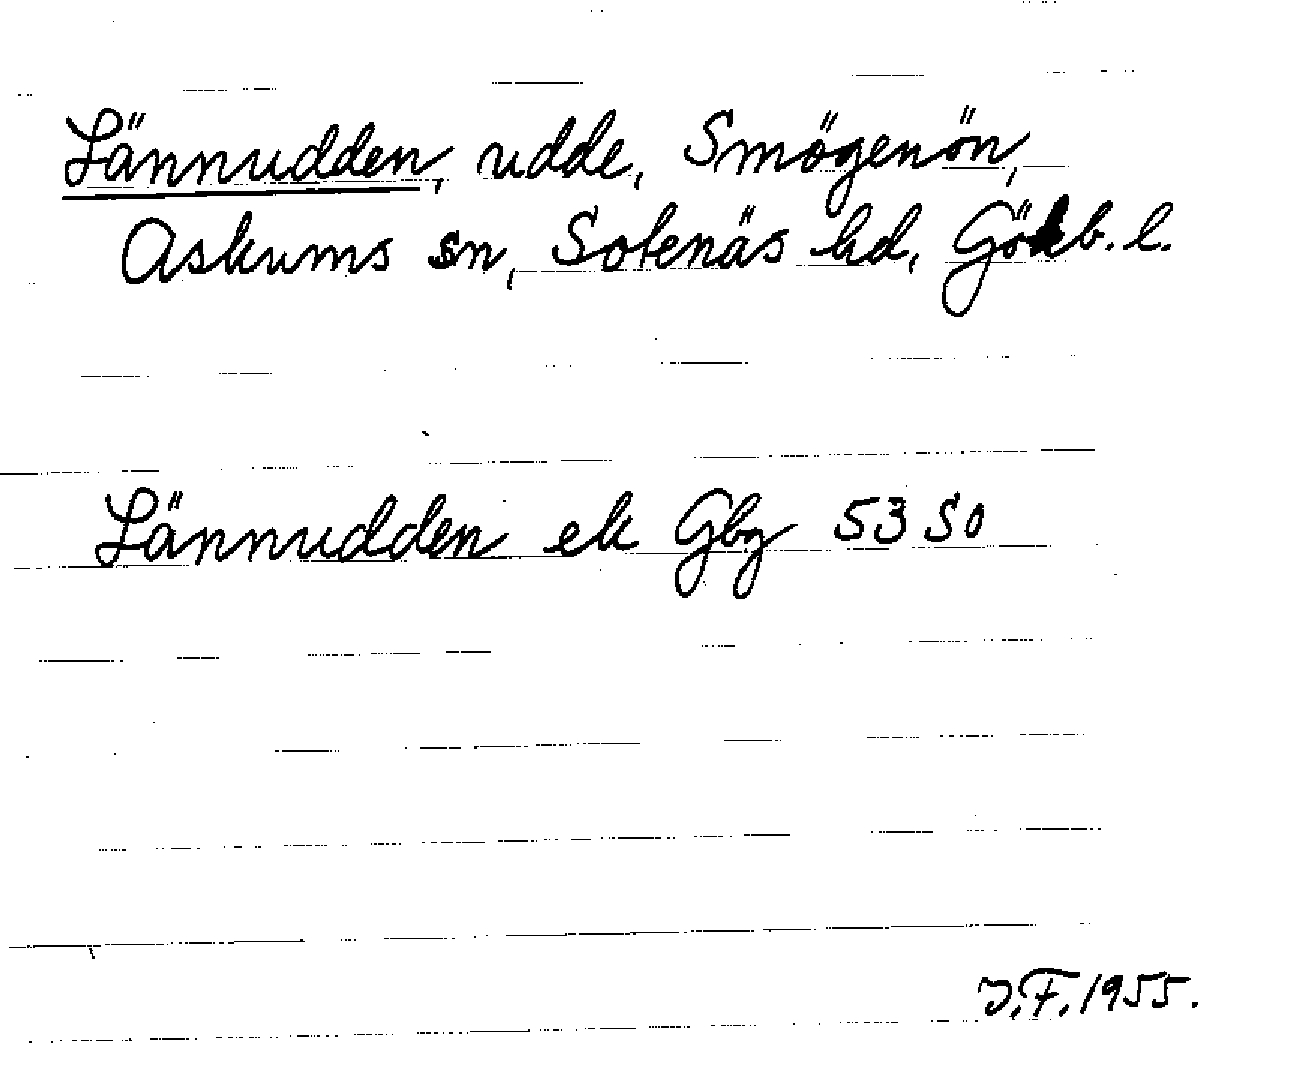 Lännudden, udde, Smögenön,
Askums sn, Sotenäs hd, Gökb. l.
Lännudden ek Gbg 53 SO
J.F. 1955.